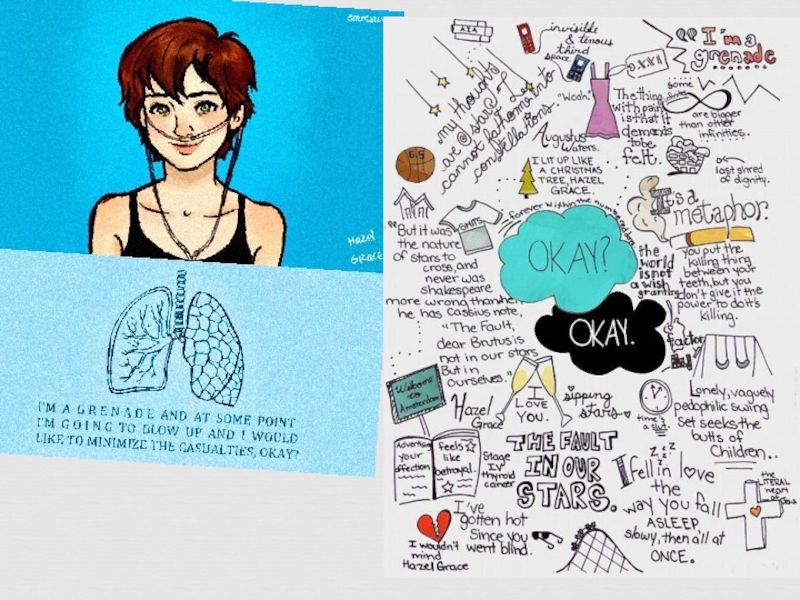 Hazel
GRACE
I'M A GRENADE AND AT SOME POINT
I'M GOING TO BLOW UP AND I WOULD
LIKE TO MINIMIZE THE CASUALTIES, OKAY?
AIA
invisible
& tenous
third
space
"I'm a
grenade
my thoughts
are stars I
cannot fathom into
constellations
"Woah."
Augustus
Waters.
The thing
with pain
is that it
demands
to be
felt.
some
are bigger
than other
infinities.
last shred
of dignity.
I LIT UP LIKE
A CHRISTMAS
TREE, HAZEL
GRACE.
It's a
metaphor.
forever within the numbered
OKAY?
OKAY.
"But it was
the nature
of stars to
cross, and
never was
shakespeare
more wrong than when
he has Cassius note,
"The Fault,
dear Brutus is
not in our stars
But in
ourselves."
the
world
is not
a wish
granting
factory
you put the
killing thing
between your
teeth, but you
don't give it the
power to do it's
killing.
Welcome
to
Amsterdam
Hazel
Grace
I
LOVE
YOU.
sipping
stars
time's
a slut.
Lonely, vaguely
pedophilic swing
set seeks the
butts of
Children..
Advertise
your
affection
feels
like
betrayal.
Stage
IV
thyroid
cancer
THE FAULT
IN OUR
STARS.
z z z
I fell in love
the
way you fall
ASLEEP
slowy, then all at
ONCE.
the
LITERAL
heart
of
I wouldn't
mind
Hazel Grace
I've
gotten hot
Since you
went blind.